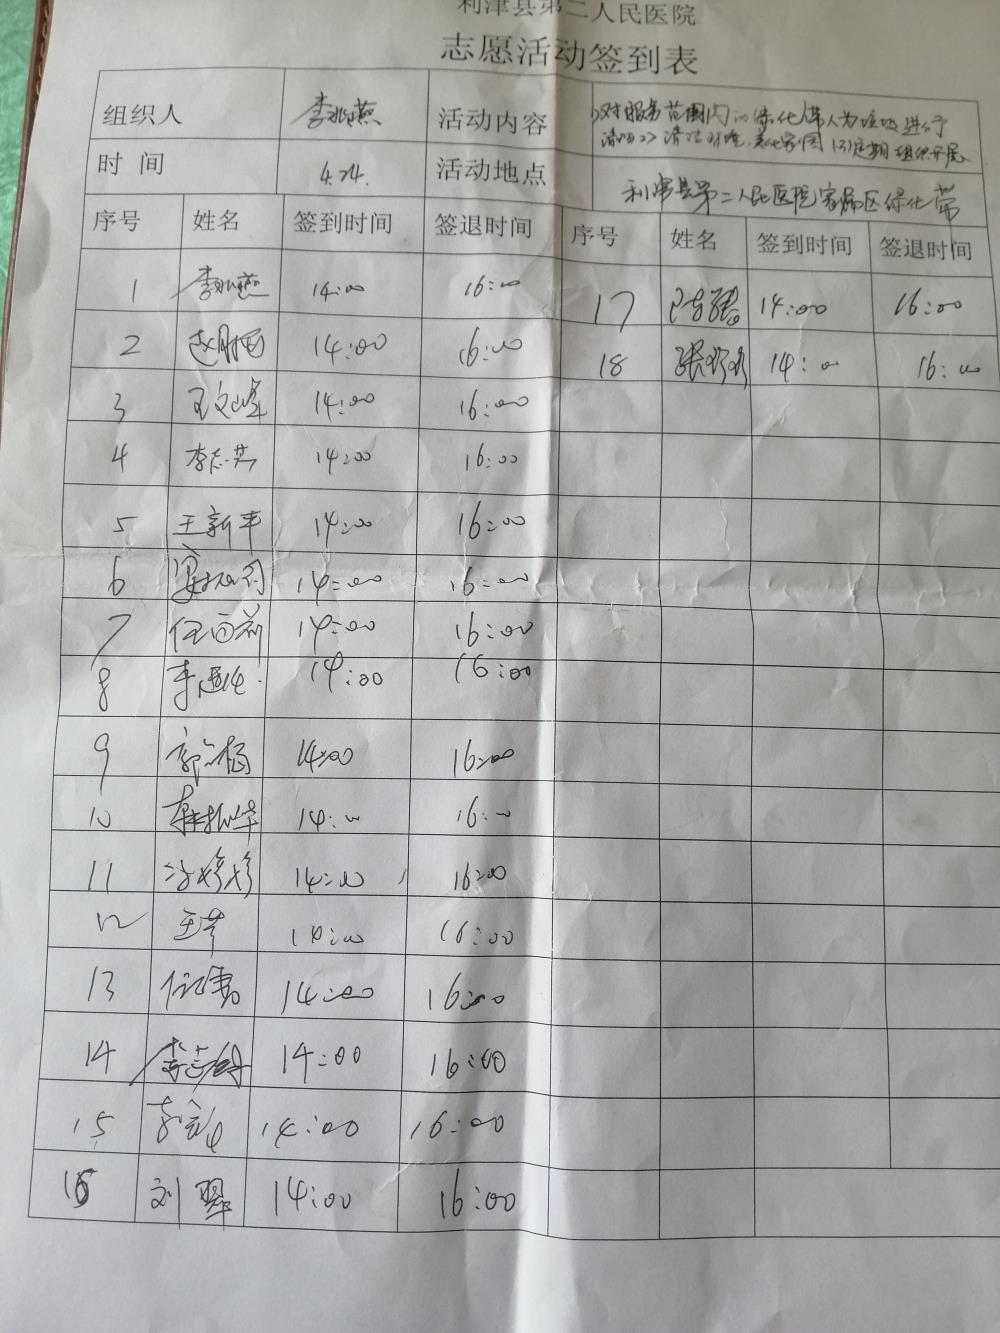 利津县第二人民医院
志愿活动签到表
组织人 李兆燕 活动内容 (1)对服务范围内的绿化带人为垃圾进行
清理(2)清洁环境,美化家园(3)定期组织开展
时 间 4.24. 活动地点 利津县第二人民医院家属区绿化带
序号 姓名 签到时间 签退时间 序号 姓名 签到时间 签退时间
1 李兆燕 14:00 16:00 17 14:00 16:00
2 14:00 16:00 18 张珍珍 14:00 16:00
3 王文峰 14:00 16:00
4 李志芸 14:00 16:00
5 王新平 14:00 16:00
6 14:00 16:00
7 14:00 16:00
8 14:00 16:00
9 14:00 16:00
10 韩振华 14:00 16:00
11 14:00 16:00
12 王芹 14:00 16:00
13 14:00 16:00
14 14:00 16:00
15 14:00 16:00
16 刘翠 14:00 16:00